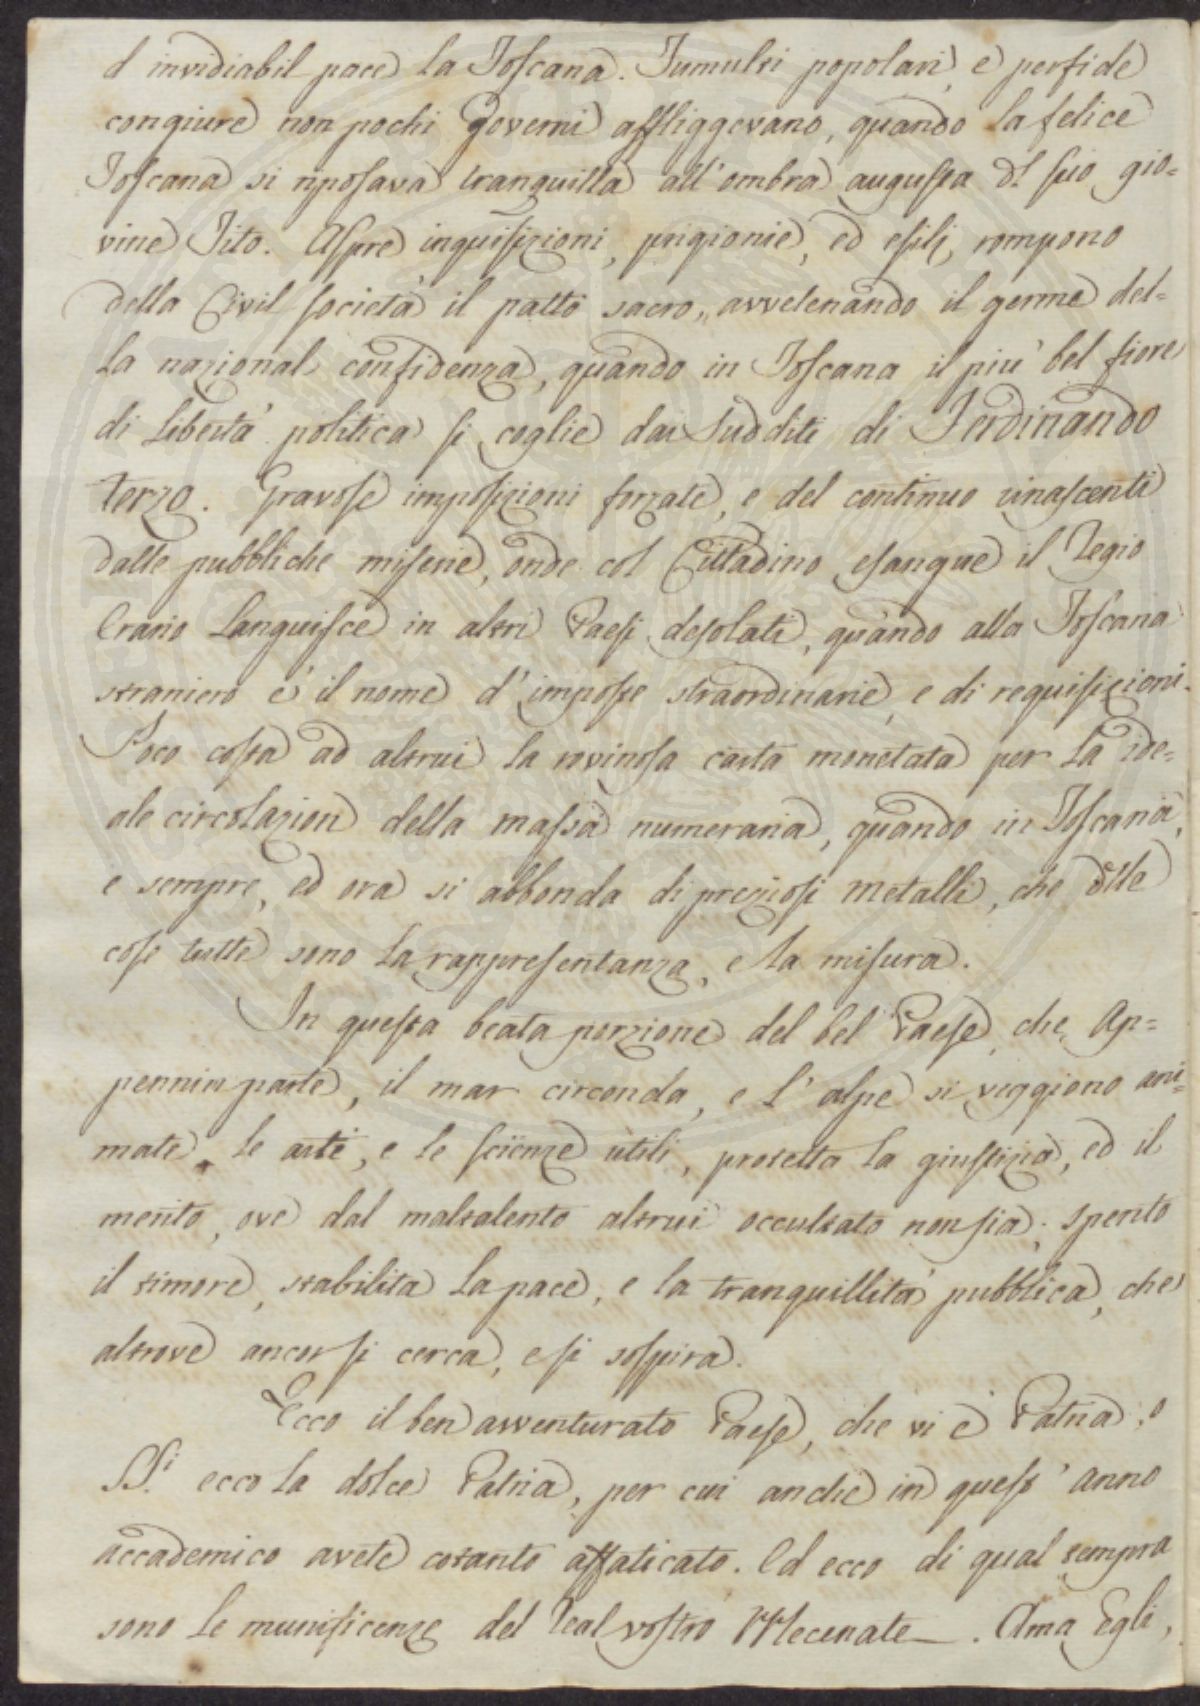 d invidiabil pace la Toscana. Tumulti popolari, e perfide
congiure non pochi Governi affliggevano, quando la felice
Toscana si riposava tranquilla all'ombra augusta dl suo gio=
vine Tito. Aspre inquisizioni, prigionie, ed esilj rompono
della Civil società il patto sacro, avvelenando il germe del=
la nazional confidenza, quando in Toscana il più bel fiore
di libertà politica si coglie dai sudditi di Ferdinando
terzo. Gravose imposizioni forzate, e del continuo rinascenti
dalle pubbliche miserie, onde col Cittadino esangue il Regio
Erario languisce in altri Paesi desolati, quando alla Toscana
straniero è il nome d'imposte straordinarie, e di requisizioni.
Poco costa ad altrui la rovinosa carta monetata per la ide=
ale circolazion della massa numeraria, quando in Toscana,
e sempre, ed ora si abbonda di preziosi metalli, che dlle
cose tutte sono la rappresentanza, e la misura.
In questa beata porzione del bel Paese, che Ap=
pennin parte, il mar circonda, e l'alpe si veggiono ani=
mate le arti, e le scienze utili, protetta la giustizia, ed il
merito, ove dal maltalento altrui occultato non sia; spento
il timore, stabilita la pace, e la tranquillità pubblica, che
altrove ancor si cerca, e si sospira.
Ecco il ben avventurato Paese, che vi è Patria, o
SS.i ecco la dolce Patria, per cui anche in quest'anno
accademico avete cotanto affaticato. Ed ecco di qual tempra
sono le munificenze del Real vostro Mecenate. Ama Egli,